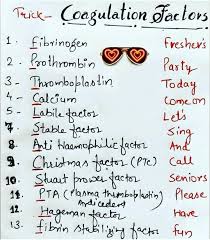 Trick - Coagulation Factors
1. Fibrinogen Fresher's
2. Prothrombin Party
3. Thromboplastin Today
4. Calcium Come on
5. Labile factor Let's
7. Stable factor Sing
8. Anti Haemophilic factor And
9. Christmas factor (PTC) Call
10. Stuart prower factor Seniors
11. PTA (Plasma thromboplastin Please
Antecedent
12. Hageman factor Have
13. fibrin stabilizing factor fun